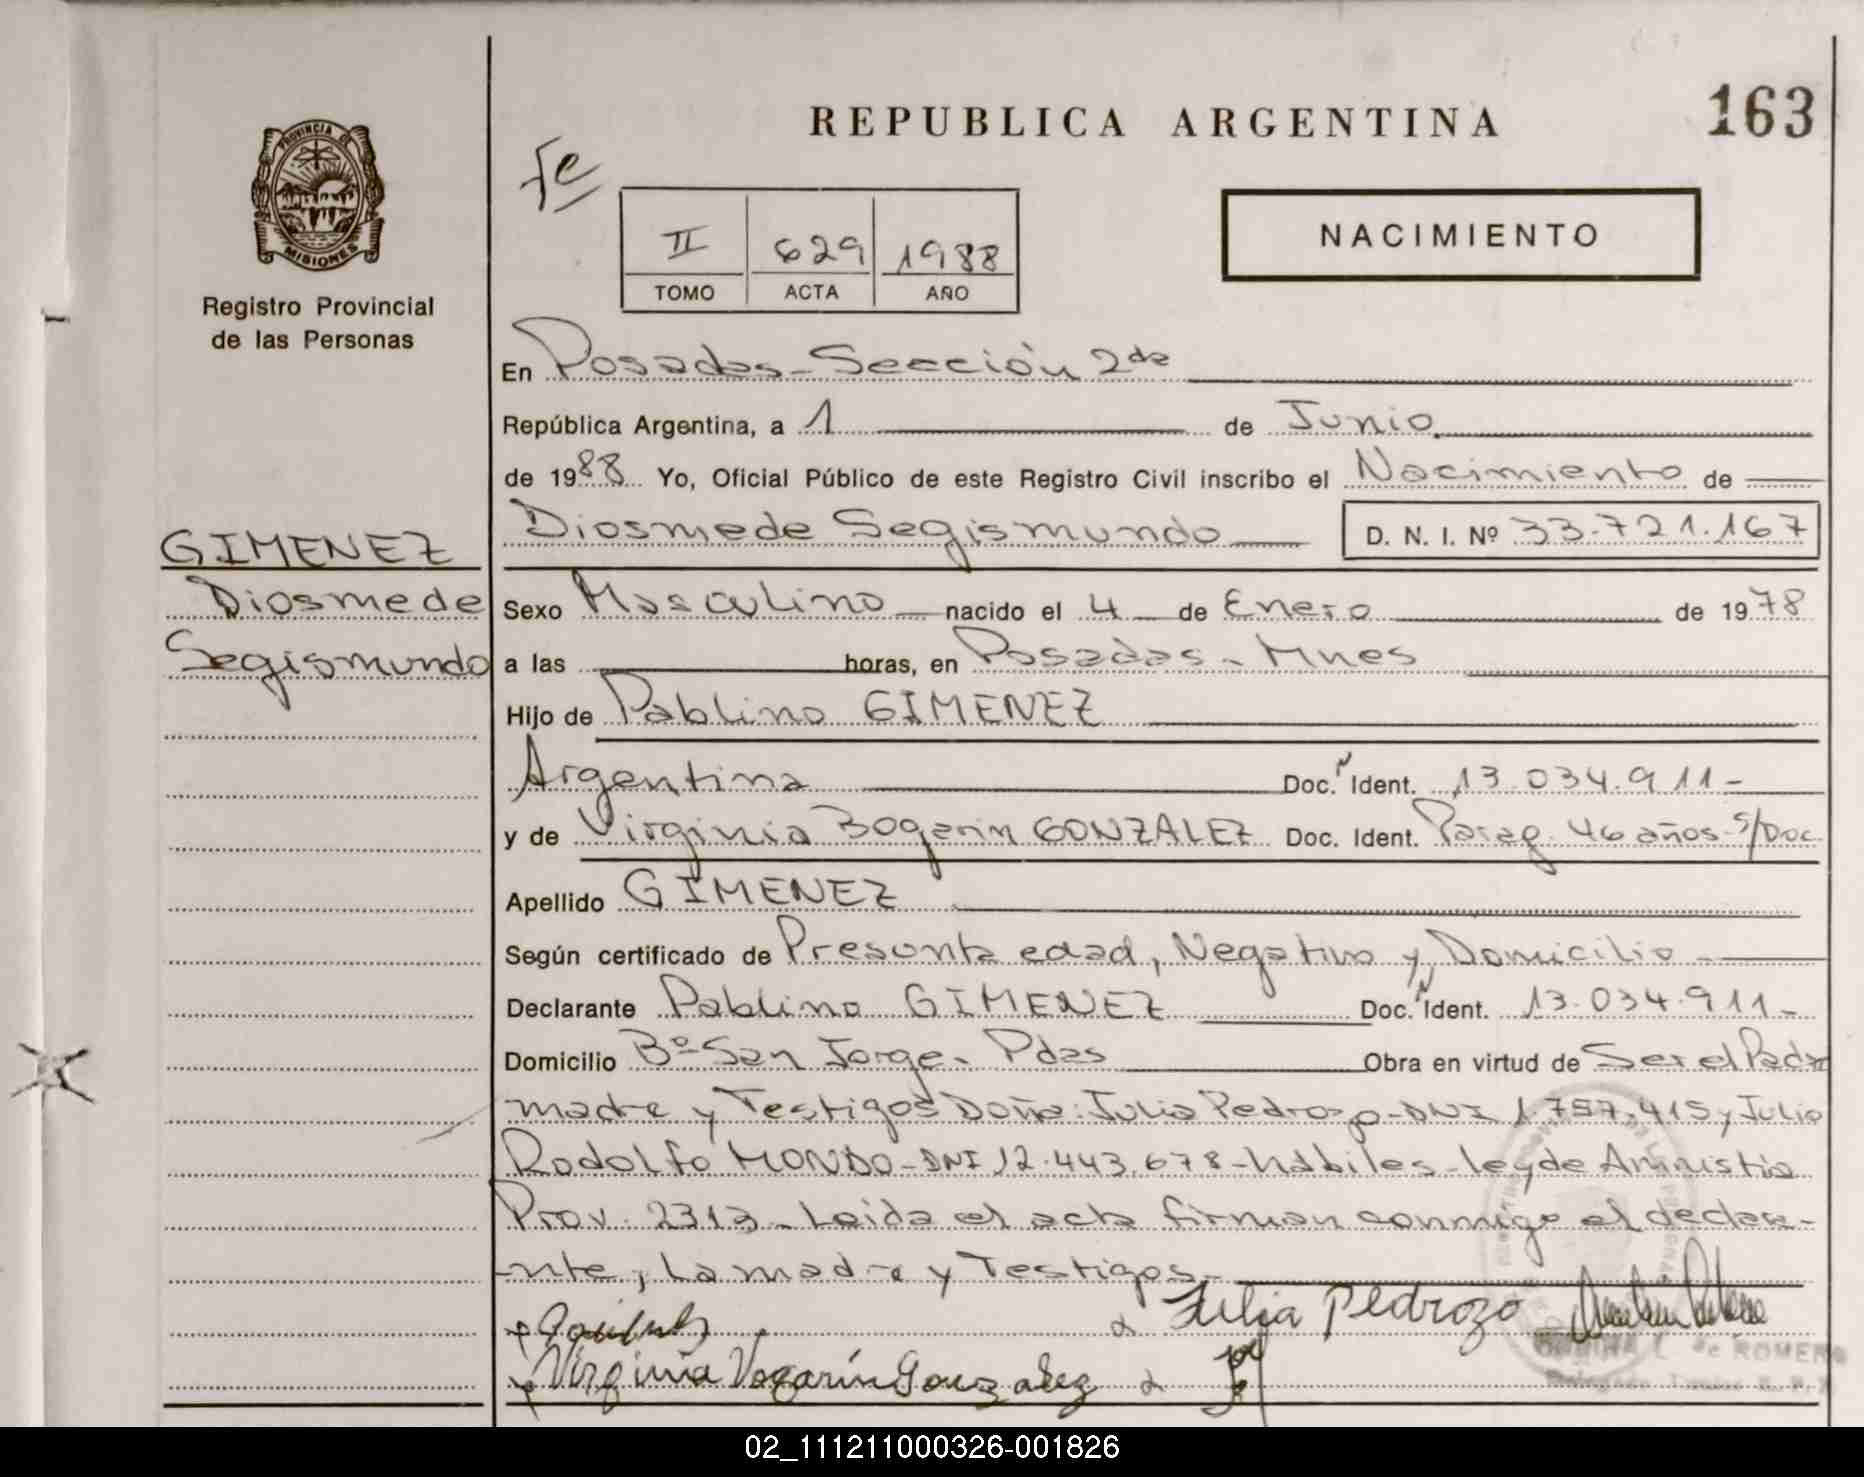 REPUBLICA ARGENTINA
163
PROVINCIA DE
MISIONES
Registro Provincial
de las Personas
II 629 1988
TOMO ACTA AÑO
NACIMIENTO
En Posadas - Sección 2da
República Argentina, a 1 de Junio
de 1988 Yo, Oficial Público de este Registro Civil inscribo el Nacimiento de
Diosmede Segismundo D. N. I. Nº 33.721.167
GIMENEZ
Diosmede
Segismundo
Sexo Masculino nacido el 4 de Enero de 1978
a las horas, en Posadas - Mnes
Hijo de Pablino GIMENEZ
Argentina Doc. N Ident. 13.034.911-
y de Virginia Bogarin GONZALEZ Doc. Ident. Parag. 46 años - S/Doc.
Apellido GIMENEZ
Según certificado de Presunta edad, Negativo y Domicilio
Declarante Pablino GIMENEZ Doc. N Ident. 13.034.911-
Domicilio Bº San Jorge - Pdas Obra en virtud de Ser el Padre
madre y Testigos Doña: Julia Pedrozo - DNI 1.757.415 y Julio
Rodolfo MONDO - DNI 12.443.678 - hábiles - ley de Amnistia
Prov. 2313 - Leida el acta firman conmigo el declara-
-nte, La madre y Testigos -
Julia Pedrozo
Virginia Vogarín Gonzalez
de ROMERO
02_111211000326-001826